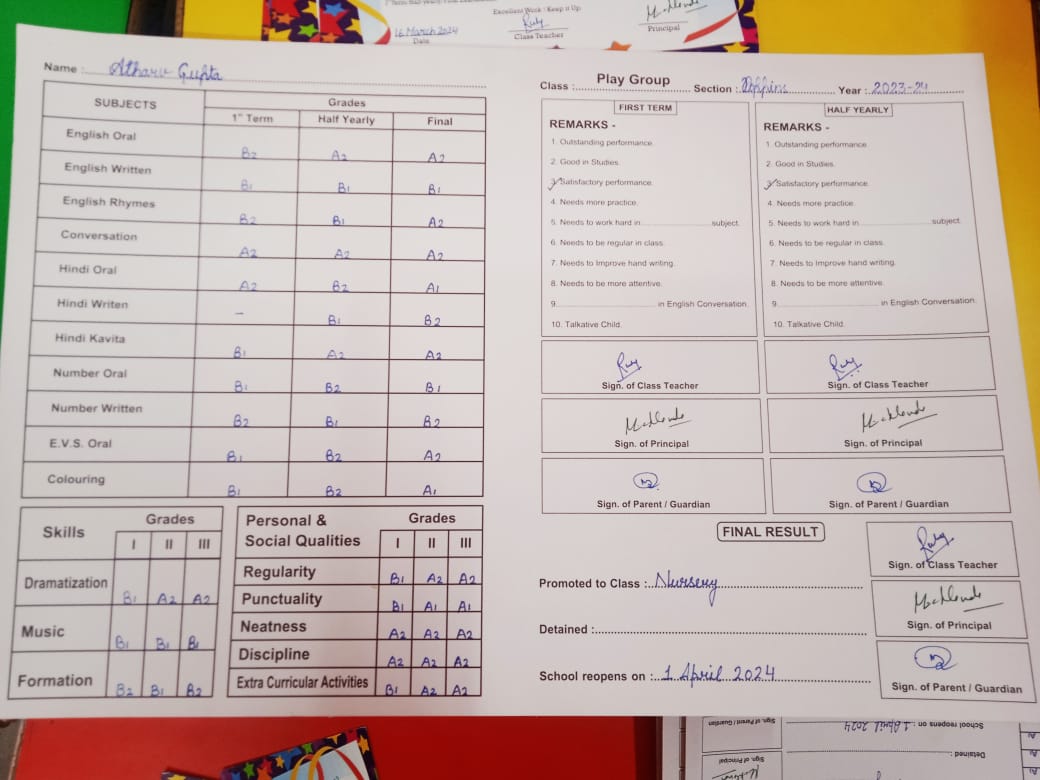 1st Term Half Yearly Final
Excellent Work / Keep it Up
16 March 2024
Date
Class Teacher
Principal
Name : Atharv Gupta
SUBJECTS Grades
1st Term Half Yearly Final
English Oral B2 A2 A2
English Written B1 B1 B1
English Rhymes B2 B1 A2
Conversation A2 A2 A2
Hindi Oral A2 B2 A1
Hindi Writen – B1 B2
Hindi Kavita B1 A2 A2
Number Oral B1 B2 B1
Number Written B2 B1 B2
E.V.S. Oral B1 B2 A2
Colouring B1 B2 A1
Skills Grades
I II III
Dramatization B1 A2 A2
Music B1 B1 B1
Formation B2 B1 B2
Personal &
Social Qualities
Grades
I II III
Regularity B1 A2 A2
Punctuality B1 A1 A1
Neatness A2 A2 A2
Discipline A2 A2 A2
Extra Curricular Activities B1 A2 A2
Class : Play Group Section : Year : 2023-24
FIRST TERM
REMARKS -
1. Outstanding performance.
2. Good in Studies.
3. Satisfactory performance.
4. Needs more practice.
5. Needs to work hard in ........ subject.
6. Needs to be regular in class.
7. Needs to Improve hand writing.
8. Needs to be more attentive.
9. ........ in English Conversation.
10. Talkative Child.
Sign. of Class Teacher
Sign. of Principal
Sign. of Parent / Guardian
HALF YEARLY
REMARKS -
1. Outstanding performance.
2. Good in Studies.
3. Satisfactory performance.
4. Needs more practice.
5. Needs to work hard in ........ subject.
6. Needs to be regular in class.
7. Needs to Improve hand writing.
8. Needs to be more attentive.
9. ........ in English Conversation.
10. Talkative Child.
Sign. of Class Teacher
Sign. of Principal
Sign. of Parent / Guardian
FINAL RESULT
Promoted to Class : Nursery
Detained :
School reopens on : 1 April 2024
Sign. of Class Teacher
Sign. of Principal
Sign. of Parent / Guardian
School reopens on : 1 April 2024
Sign. of Parent / Guardian
Detained :
Sign. of Principal